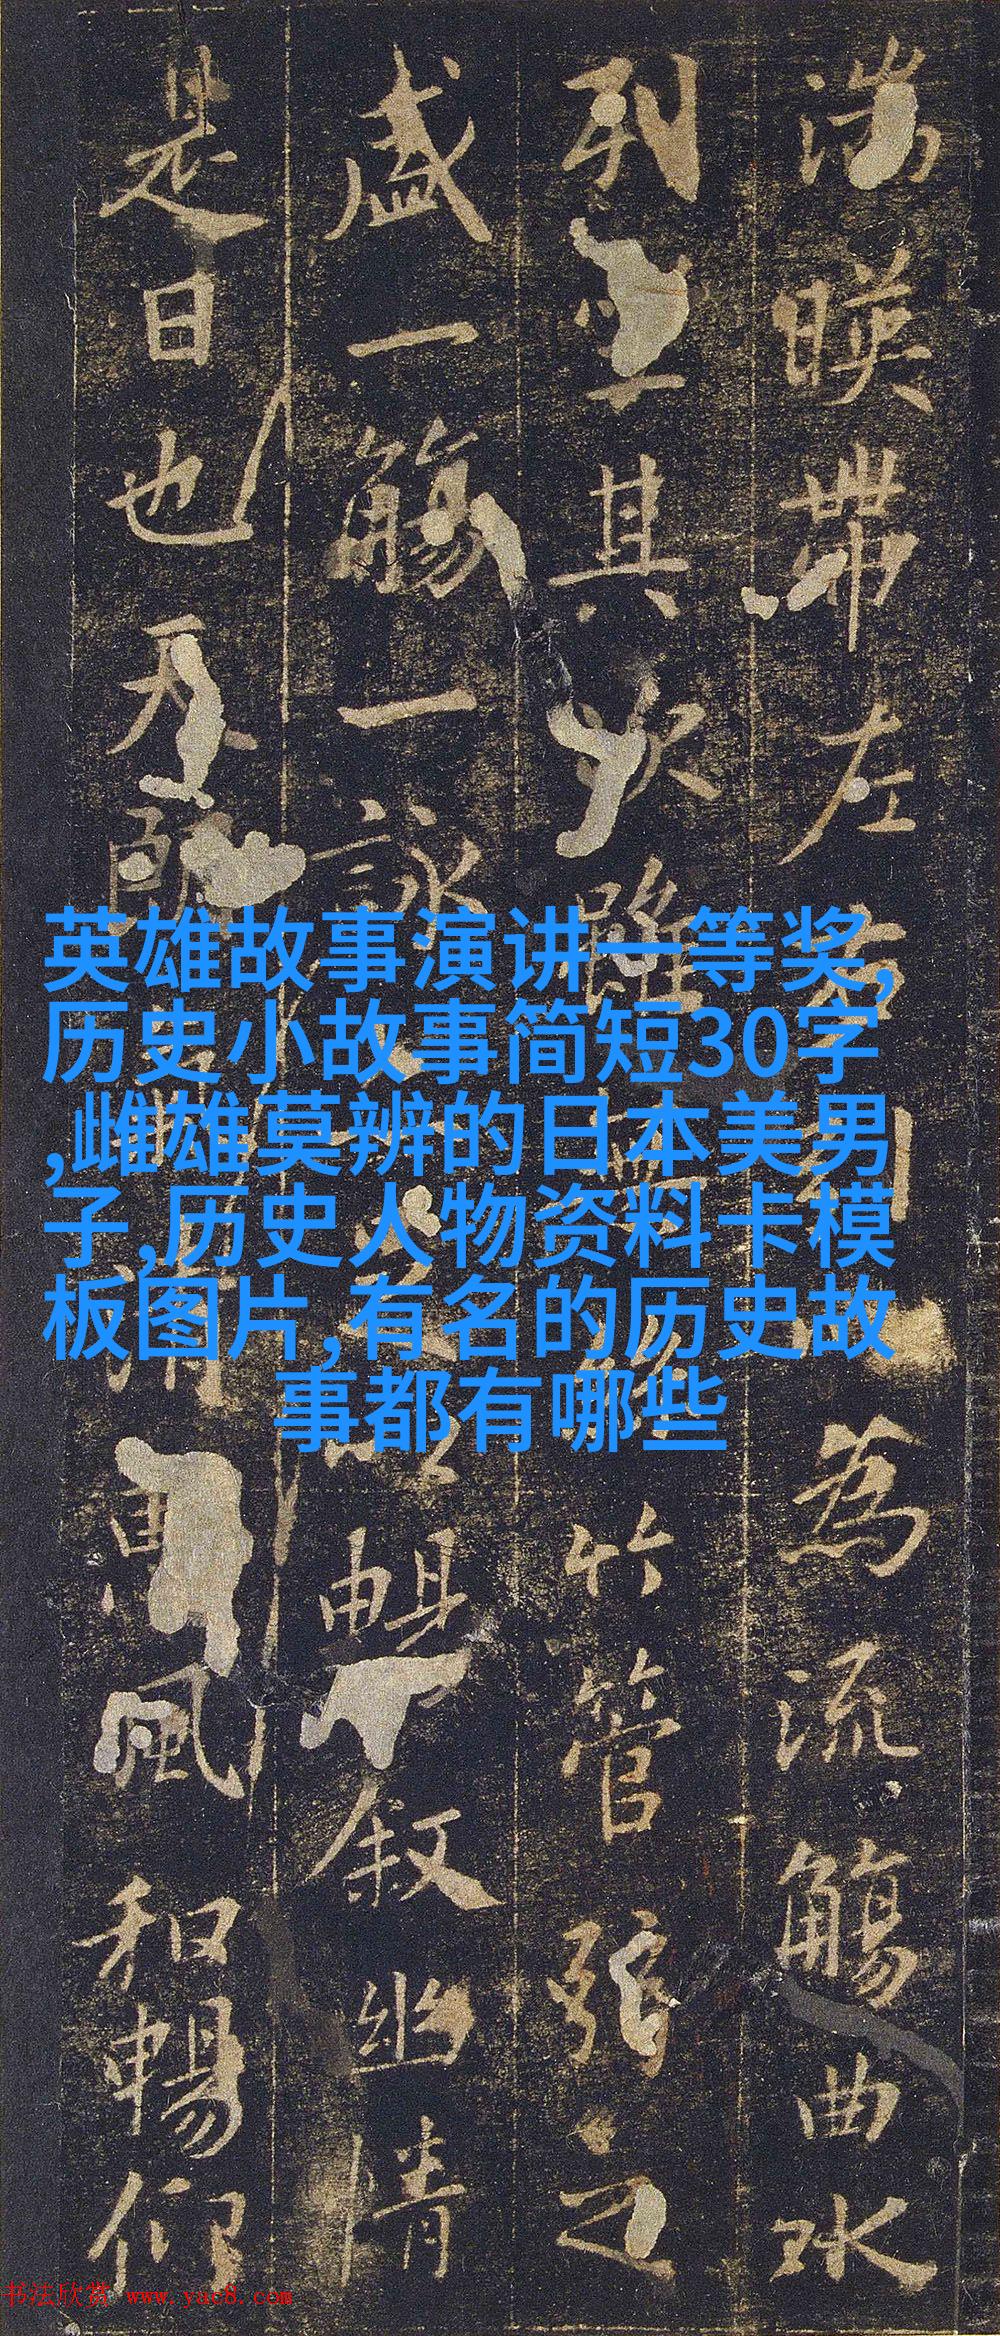 湍暎帶左右引為流觴曲水
列坐其次雖竹管弦之
盛一觴一詠暢敘幽情
是日也天朗清惠風和暢仰
英雄故事演讲一等奖,
历史小故事简短30字
,雌雄莫辨的日本美男
子,历史人物资料卡模
板图片,有名的历史故
事都有哪些
书法欣赏 www.yac8.com